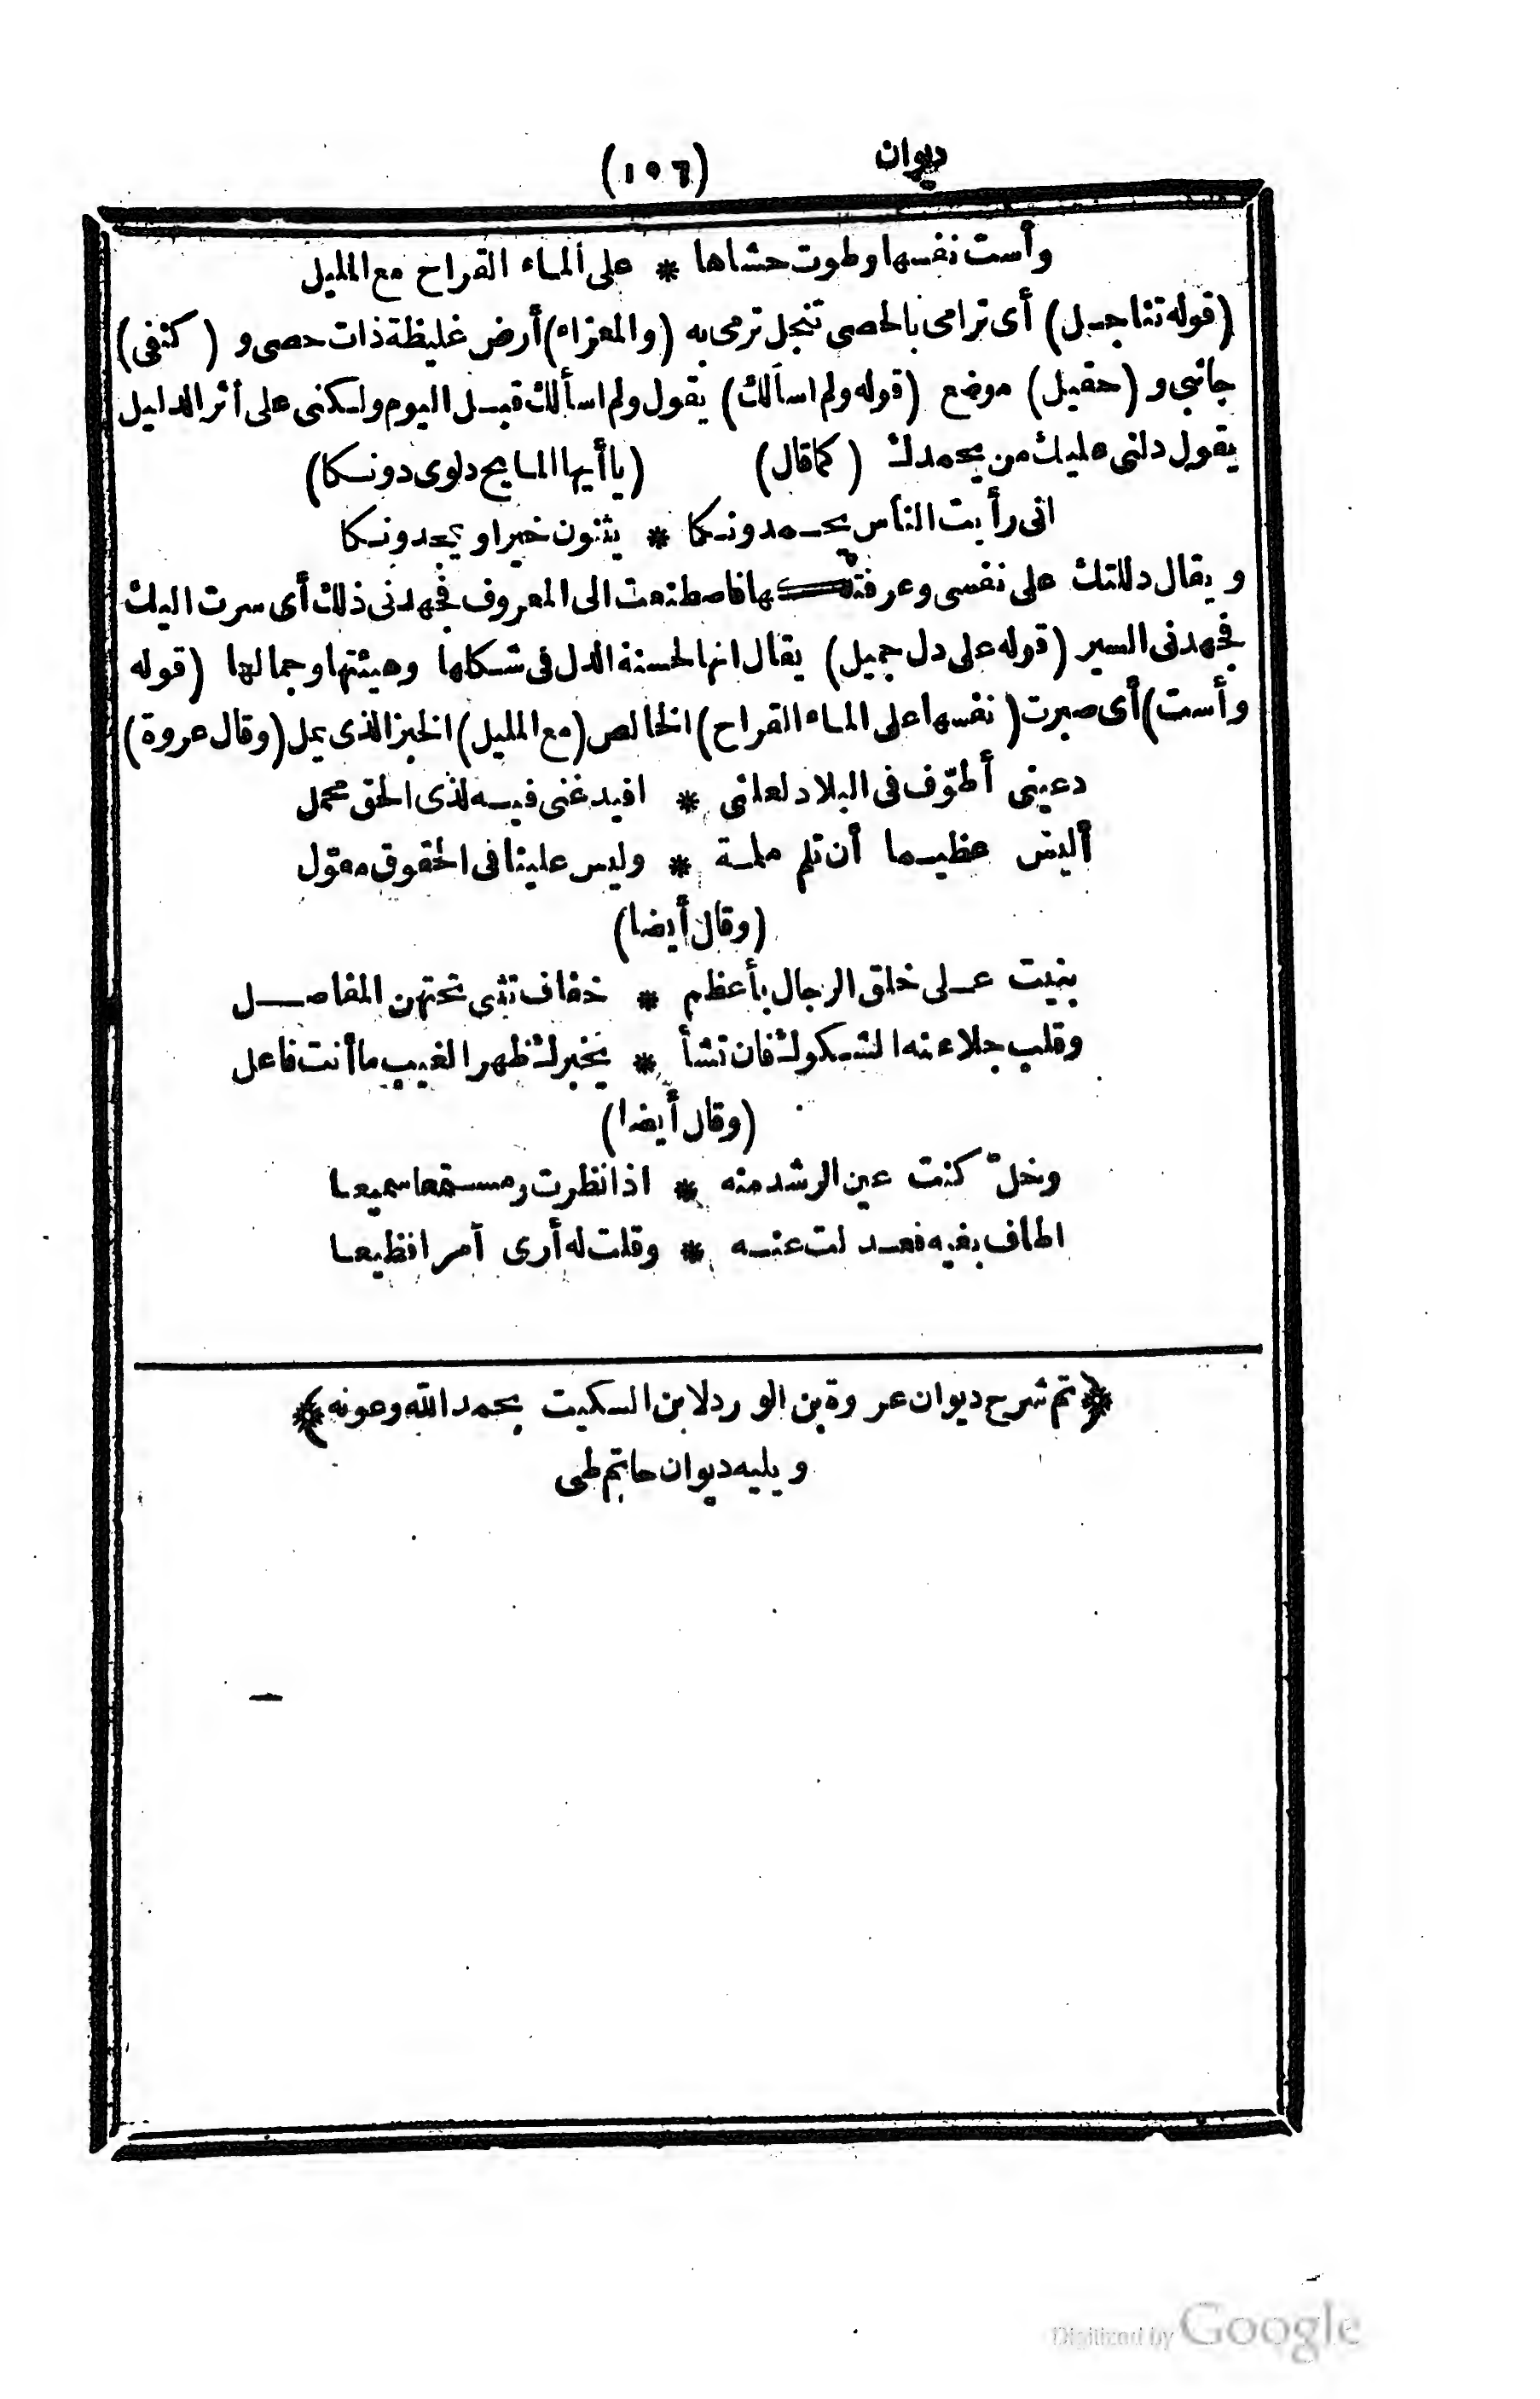 ديوان (١٠٦)
وأست نفسها وطوت حشاها * على الماء القراح مع المليل
(قوله تناجل) أى ترامى بالحصى تنجل ترمى به (والمعزاء) أرض غليظة ذات حصى و (كنفى)
جانبى و (حقيل) موضع (قوله ولم اسألك) يقول ولم اسألك قبل اليوم ولكنى على أثر الدليل
يقول دلنى عليك من يحمدك (كما قال) (يا أيها المايح دلوى دونكا)
انى رأيت الناس يحمدونكا * يثنون خيرا ويمجدونكا
ويقال دللتك على نفسى وعرفتكها فاصطنعت الى المعروف فجهدنى ذلك أى سرت اليك
فجهدنى السير (قوله على دل جميل) يقال انها لحسنة الدل فى شكلها وهيئتها وجمالها (قوله
وأست) أى صبرت (نفسها على الماء القراح) الخالص (مع المليل) الخبز الذى يمل (وقال عروة)
دعينى أطوّف فى البلاد لعلنى * افيد غنى فيه لذى الحق محمل
أليس عظيما أن تلم ملمة * وليس علينا فى الحقوق معوّل
(وقال أيضا)
بنيت على خلق الرجال بأعظم * خفاف تثنى تحتهن المفاصل
وقلب جلا عنه الشكوك فان تشأ * يخبرك ظهر الغيب ما أنت فاعل
(وقال أيضا)
وخلّ كنت عين الرشد منه * اذا نظرت ومستمعا سميعا
اطاف بغيه فعدلت عنه * وقلت له أرى أمرا فظيعا
﴿تم شرح ديوان عروة بن الورد لابن السكيت بحمد الله وعونه﴾
ويليه ديوان حاتم طى
Digitized by Google